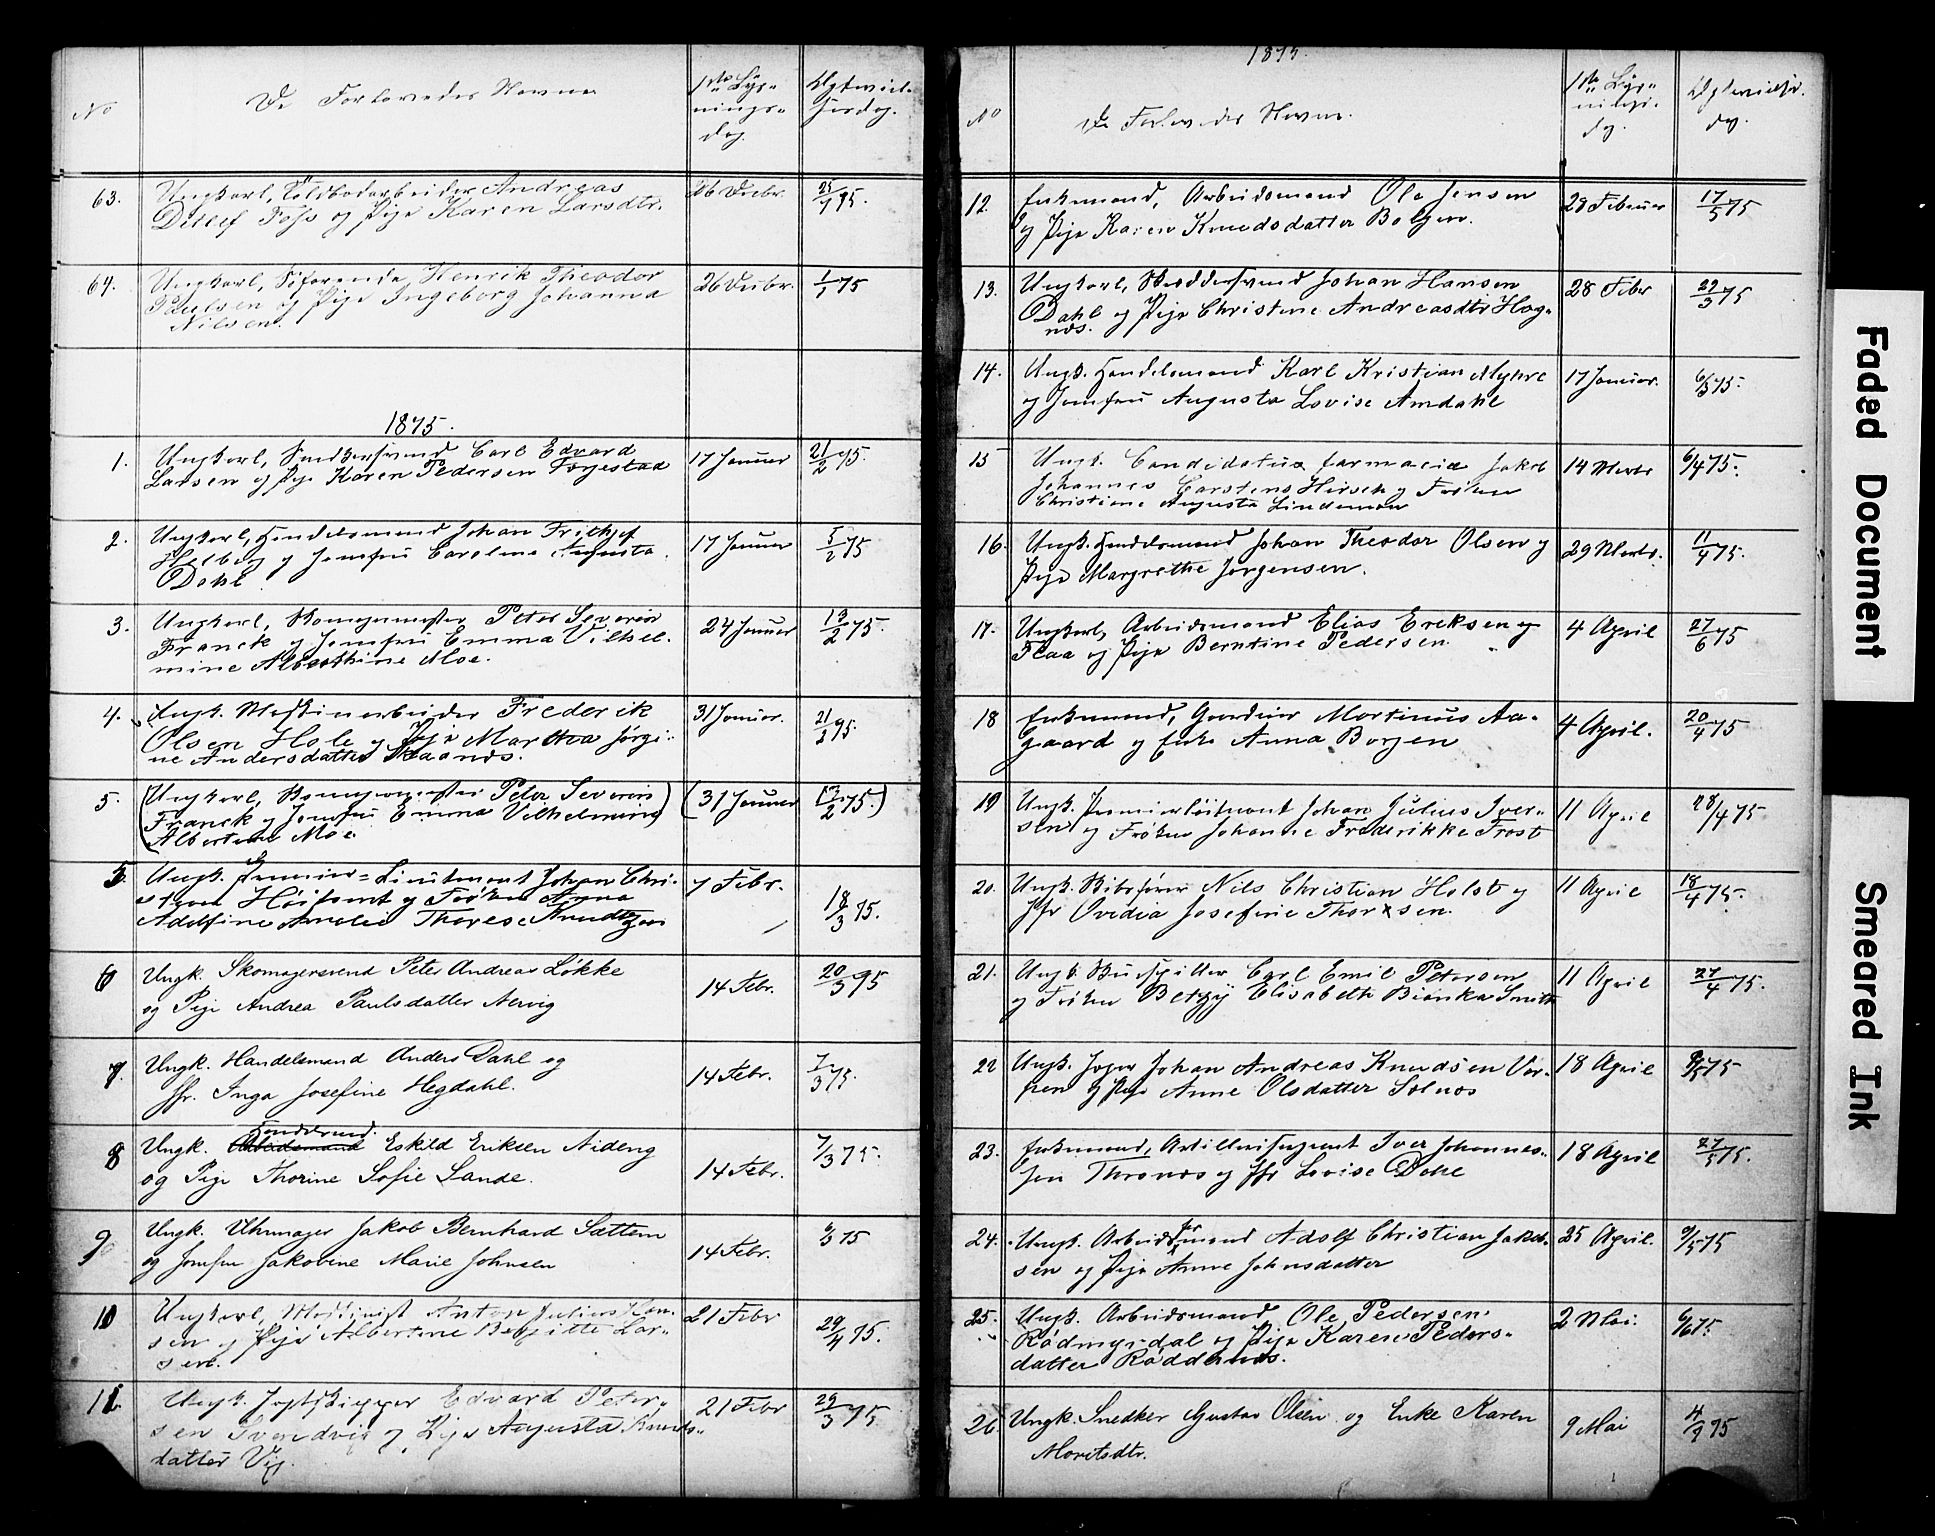 No
De Forlovedes Navne
1ste Lys-
nings-
dag.
Ægteviel-
sesdag.
63. Ungkarl, Toldbodarbeider Andreas 26 Decbr. 25/1 75.
Ditlef Foss og Pige Karen Larsdtr.
64. Ungkarl, Henrik Theodor 26 Decbr. 1/1 75
Paulsen og Pige Ingeborg Johanna
Nilsen.
1875.
1. Ungkarl, Snedkersvend Carl Edvard 17 Januar 21/2 75.
Larsen og Pige Karen Pedersen Fogestad
2. Ungkarl, Handelsmand Johan Frithjof 17 Januar 5/2 75
og Jomfru Caroline Augusta
Dahl
3. Ungkarl, Peter Severin 24 Januar 13/2 75.
Franck og Jomfru Emma Vilhel-
mine Albertine Moe.
4. Ungk. Maskinarbeider Frederik 31 Januar. 21/2 75.
Olsen Hole og Pige Martha Jørgi-
ne Andersdatter
5. (Ungkarl, Peter Severin) (31 Januar 13/2 75.)
Franck og Jomfru Emma Vilhelmine
Albertine Moe
5. Ungk. Premier-Lieutenant Johan Chri- 7 Febr. 18/3 75.
og Frøken Anna
Adolfine Amalie Therese Knudtzon
6 Ungk. Skomagersvend Peter Andreas Løkke 14 Febr. 20/3 75
og Pige Andrea Paulsdatter Nervig
7. Ungk. Handelsmand Anders Dahl og 14 Febr. 7/3 75.
Jfr. Inga Josefine Hegdahl.
8 Ungk. Arbeidsmand Handelsmd. Eskild Eriksen Aideng 14 Febr. 7/3 75.
og Pige Thorine Sofie Sande.
9 Ungk. Uhrmager Jakob Bernhard Sættem 14 Febr. 6/3 75
og Jomfru Jakobine Marie Johnsen
10 Ungkarl, Maskinist Anton Julius Han- 21 Febr 29/4 75.
sen og Pige Albertine Bergitte Lar-
sen.
11 Ungk. Jagtskipper Edvard Peter- 21 Febr 29/3 75
sen og Pige Augusta Knuds-
datter Vig.
1875.
No
De Forlovedes Navne.
1ste Lys-
nings-
dg.
Ægtevielses-
dg.
12. Enkemand, Arbeidsmand Ole Jensen 28 Februar 17/5 75
og Pige Karen Knudsdatter Bolgen.
13. Ungkarl, Skreddersvend Johan Hansen 28 Febr 29/3 75
Dahl og Pige Christine Andreasdtr Hog-
nes.
14. Ungk. Handelsmand Karl Kristian Myhre 17 Januar. 6/3 75.
og Jomfru Augusta Lovise Amdahl
15 Ungk. Candidatus farmacia Jakob 14 Marts 6/4 75.
Johannes Carstens Hirsch og Frøken
Christine Augusta Lindeman
16. Ungk. Handelsmand Johan Theodor Olsen og 29 Marts. 11/4 75.
Pige Margrethe Jørgensen.
17. Ungkarl, Arbeidsmand Elias Eriksen og 4 April 27/6 75
Flaa og Pige Berntine Pedersen
18 Enkemand, Mortinus Aa- 4 April. 20/4 75
gaard og Enke Anna Borgen
19 Ungk. Premierløitnant Johan Julius Iver- 11 April 28/4 75
sen og Frøken Johanne Frederikke Frost
20. Ungk. Nils Christian Holst og 11 April 18/4 75.
Jfr Ovidia Josefine Thorsen.
21. Ungk. Carl Emil Petersen 11 April 27/4 75.
og Frøken Betzy Elisabeth Bianka Smith
22 Ungk. Johan Andreas Knudsen Vor- 18 April 9/5 75
pen og Pige Anne Olsdatter Solnes
23. Enkemand, Artillerisergeant Iver Johannes- 18 April 27/5 75.
sen Thronæs og Jfr Lovise Dahl
24. Ungk. Arbeidsmand Adolf Christian Jakob- 25 April. 9/5 75
sen og Pige Anne Johnsdatter
25. Ungk. Arbeidsmand Ole Pedersen 2 Mai. 6/6 75
og Pige Karen Peders-
datter
26. Ungk. Snedker Gustav Olsen og Enke Karen 9 Mai 4/9 75
Moritsdtr.
Faded Document
Smeared Ink